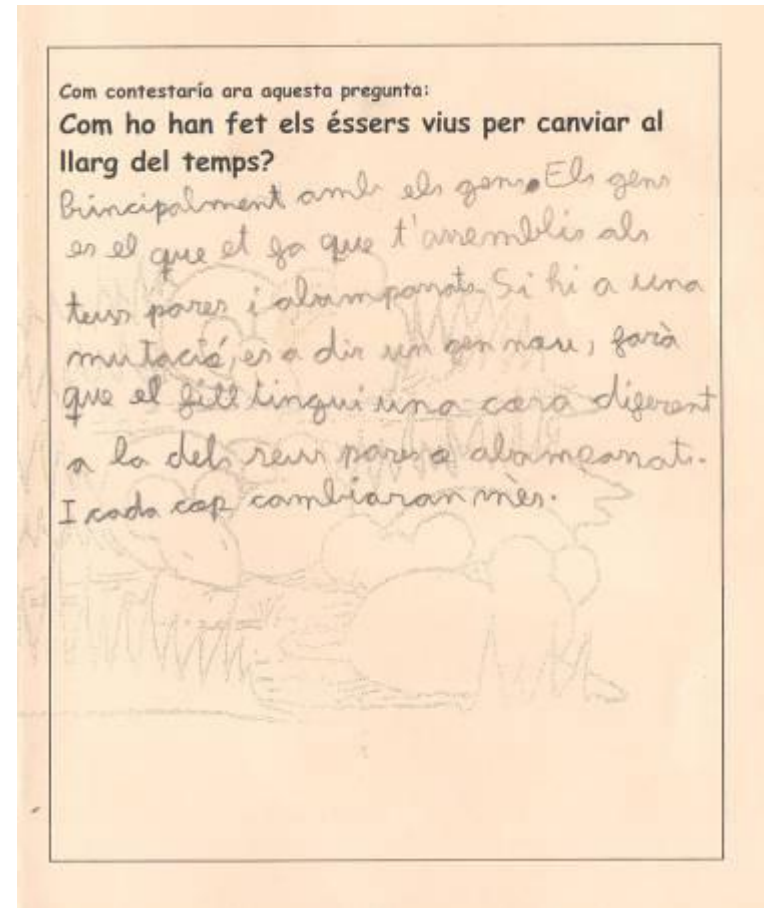 Com contestaría ara aquesta pregunta:
Com ho han fet els éssers vius per canviar al
llarg del temps?
Principalment amb els gens. Els gens
es el que et fa que t'assemblis als
teus pares i abampasats. Si hi a una
mutació, es a dir un gen nou, farà
que el fill tingui una cara diferent
a la dels seus pares o abampasats.
I cada cop cambiaran mès.